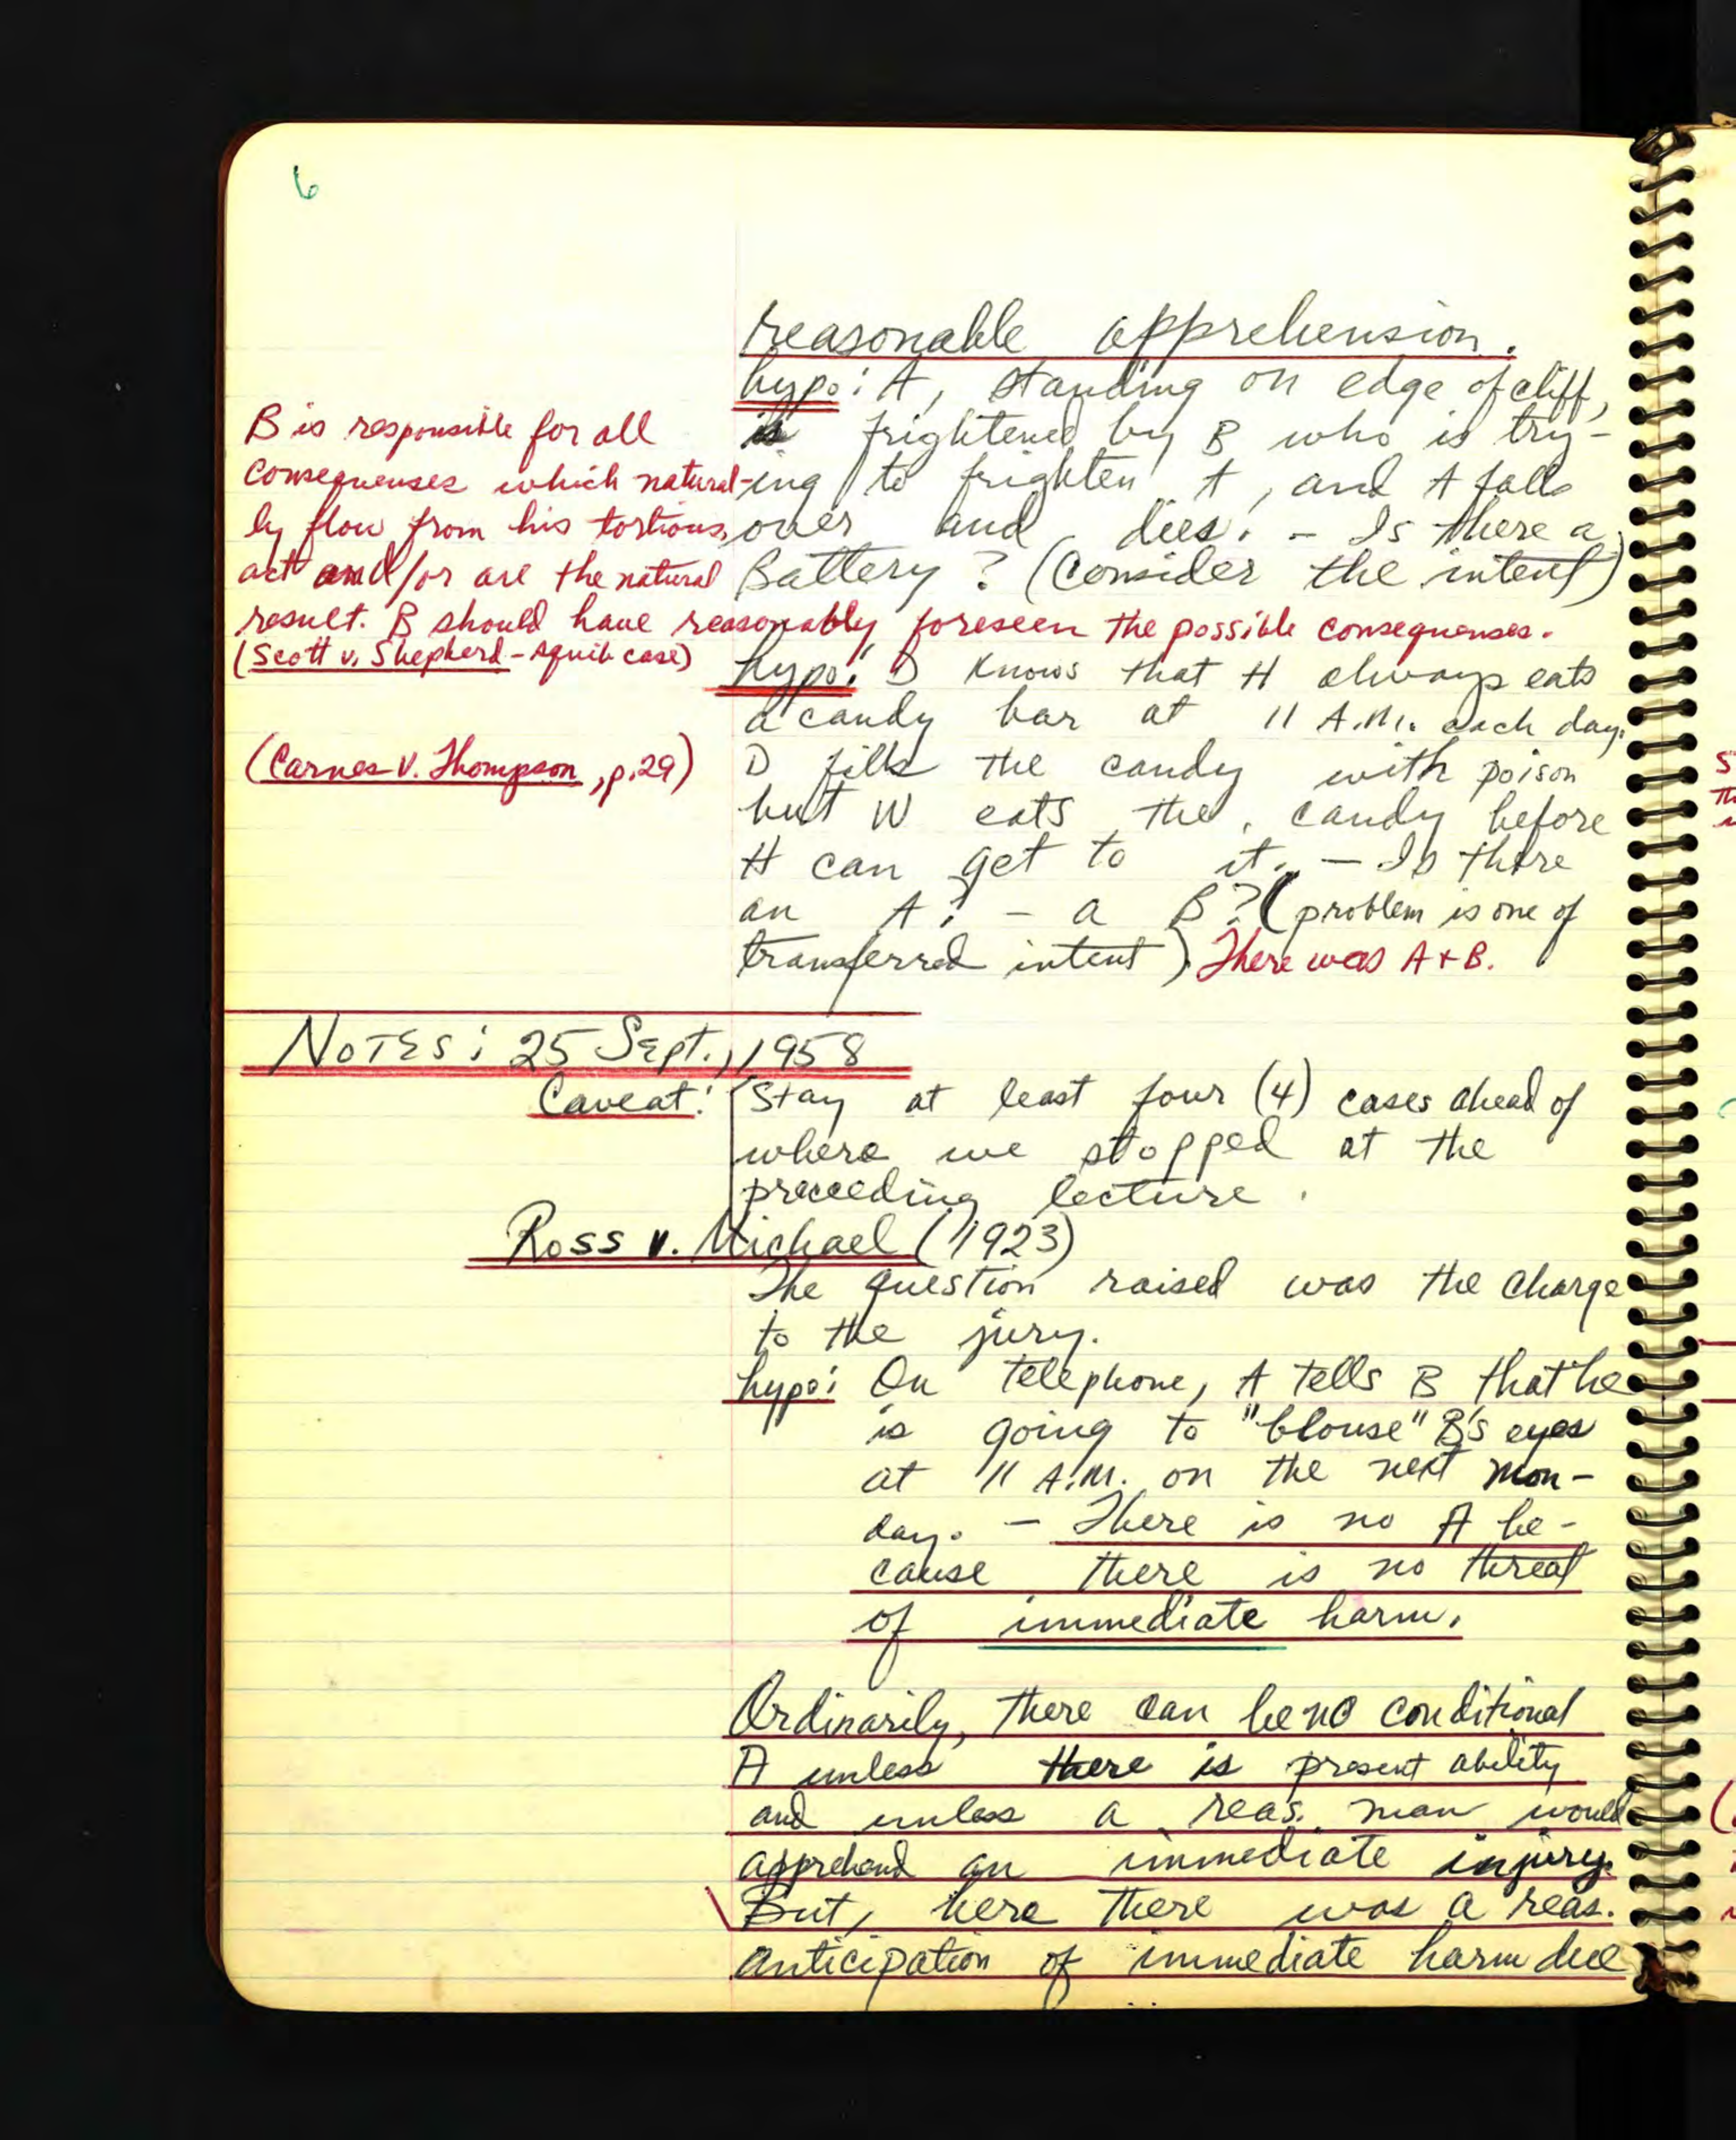 6
reasonable apprehension.
hypo: A, standing on edge of cliff,
is frightened by B who is try-
ing to frighten A, and A falls
over and dies. - Is there a
Battery? (Consider the intent)
B is responsible for all
consequenses which natural-
ly flow from his tortious
act and/or are the natural
result. B should have reasonably foreseen the possible consequenses.
(Scott v. Shepherd - squib case)
hypo: D knows that H always eats
a candy bar at 11 A.M. each day.
D fills the candy with poison
but W eats the candy before
H can get to it. — Is there
an A? - a B? (problem is one of
transferred intent) There was A + B.
(Carnes v. Thompson, p. 29)
NOTES: 25 Sept., 1958
Caveat: Stay at least four (4) cases ahead of
where we stopped at the
preceeding lecture.
Ross v. Michael (1923)
The question raised was the charge
to the jury.
hypo: On telephone, A tells B that he
is going to "blouse" B's eyes
at 11 A.M. on the next Mon-
day. — There is no A be-
cause there is no threat
of immediate harm.
Ordinarily, there can be no conditional
A unless there is present ability
and unless a reas. man would
apprehend an immediate injury.
But, here there was a reas.
anticipation of immediate harm due